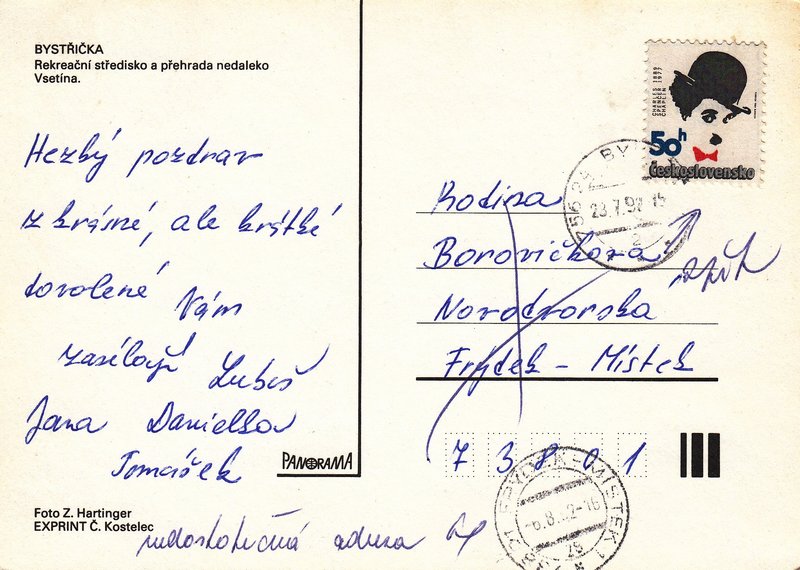 BYSTŘIČKA
Rekreační středisko a přehrada nedaleko
Vsetína.
Hezký pozdrav
z krásné, ale krátké
dovolené Vám
zasílají Luboš
Jana Daniella
Tomášek
PANORAMA
Foto Z. Hartinger
EXPRINT Č. Kostelec
nedostatečná adresa
CHARLES SPENCER CHAPLIN 1889 1977
50h
Československo
756 24 BY
23.7.92 15
2
Rodina
Borovičkova
zpět
Novodvorska
Frýdek - Místek
7 3 8 0 1
FRÝDEK-MÍSTEK 1
-6.8. 2-16